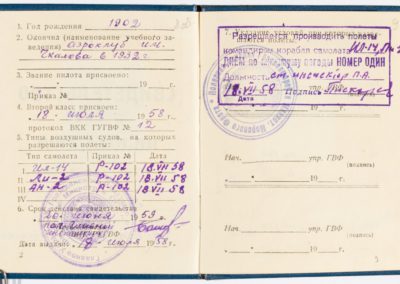 1. Год рождения 1902
2. Окончил (наименование учебного за-
ведения) аэроклуб им.
Чкалова в 1932 г
3. Звание пилота присвоено:
19 г.
Приказ №
4. Второй класс присвоен:
18 июля 1958 г.
протокол ВКК ГУГВФ № 12
5. Типы воздушных судов, на которых
разрешаются полеты:
Тип самолета Приказ № Дата
I. Ил-14 Р-102 18.VII 58
II. Ли-2 Р-102 18.VII 58
III. Ан-2 Р-102 18.VII 58
IV.
6. Срок действия свидетельства
20 июня 1959 г.
Дата выдачи 18 июля 1958 г.
2
7. Указание условий, при которых
Разрешается производить полеты
командиром корабля самолета Ил-14, Ли-2
ДНЕМ по минимуму погоды НОМЕР ОДИН
Должность ст. инспектор Л.А.
18.VII 58 Подпись
Дата
Нач. упр. ГВФ
(подпись)
19 г.
Нач. упр. ГВФ
(подпись)
19 г.
3